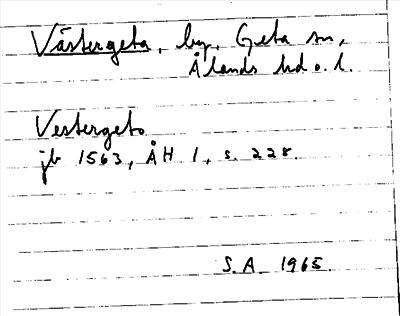 Västergeta, by, Geta sn,
Ålands hd o. l.
Vestergeto
jb 1563, ÅH 1, s. 228.
S.A. 1965.